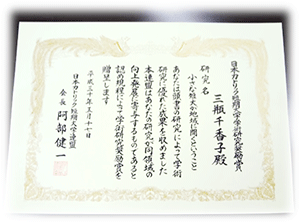 日本カトリック短期大学学術研究奨励賞
三瓶千香子殿
研究名
小さな短大が地域に開くということ
あなたは頭書の研究によって学術
研究に優れた成果を収めました
本連盟はあなたの研究が同領域の
向上発展に寄与するものであると
認め規程によって学術研究奨励賞を
贈呈します
平成三十年三月十七日
日本カトリック短期大学連盟
会長 阿部健一